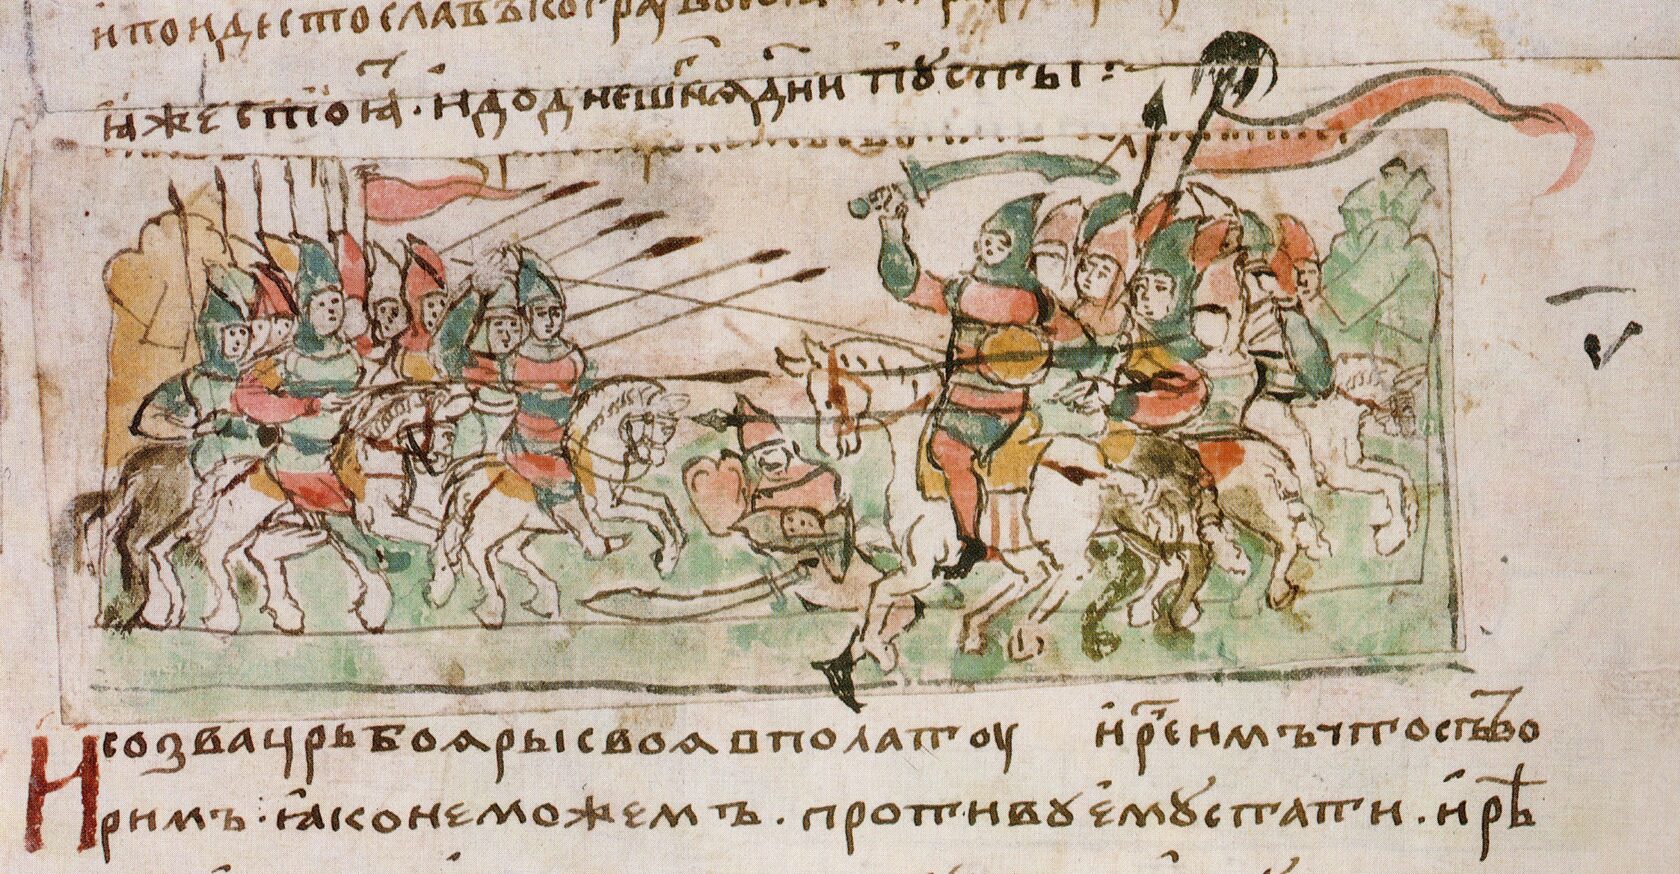 и поиде стославъ ко гра
ꙗже стоꙗⷮ · и до днешнѧⷢ дни пꙋсты :~
И созва црь боѧры своѧ в полатоу и реⷱ имъ что сътво
римъ : ꙗко не можемъ · противꙋ емꙋ стати · и рѣ